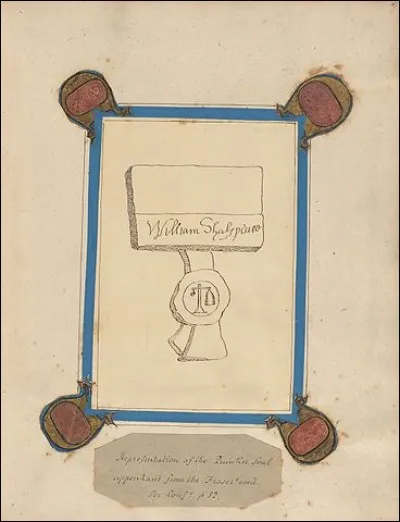 William Shakspeare
Representation of the Quintin Seal
appendant from the Fraser deed
See Conf^s. p